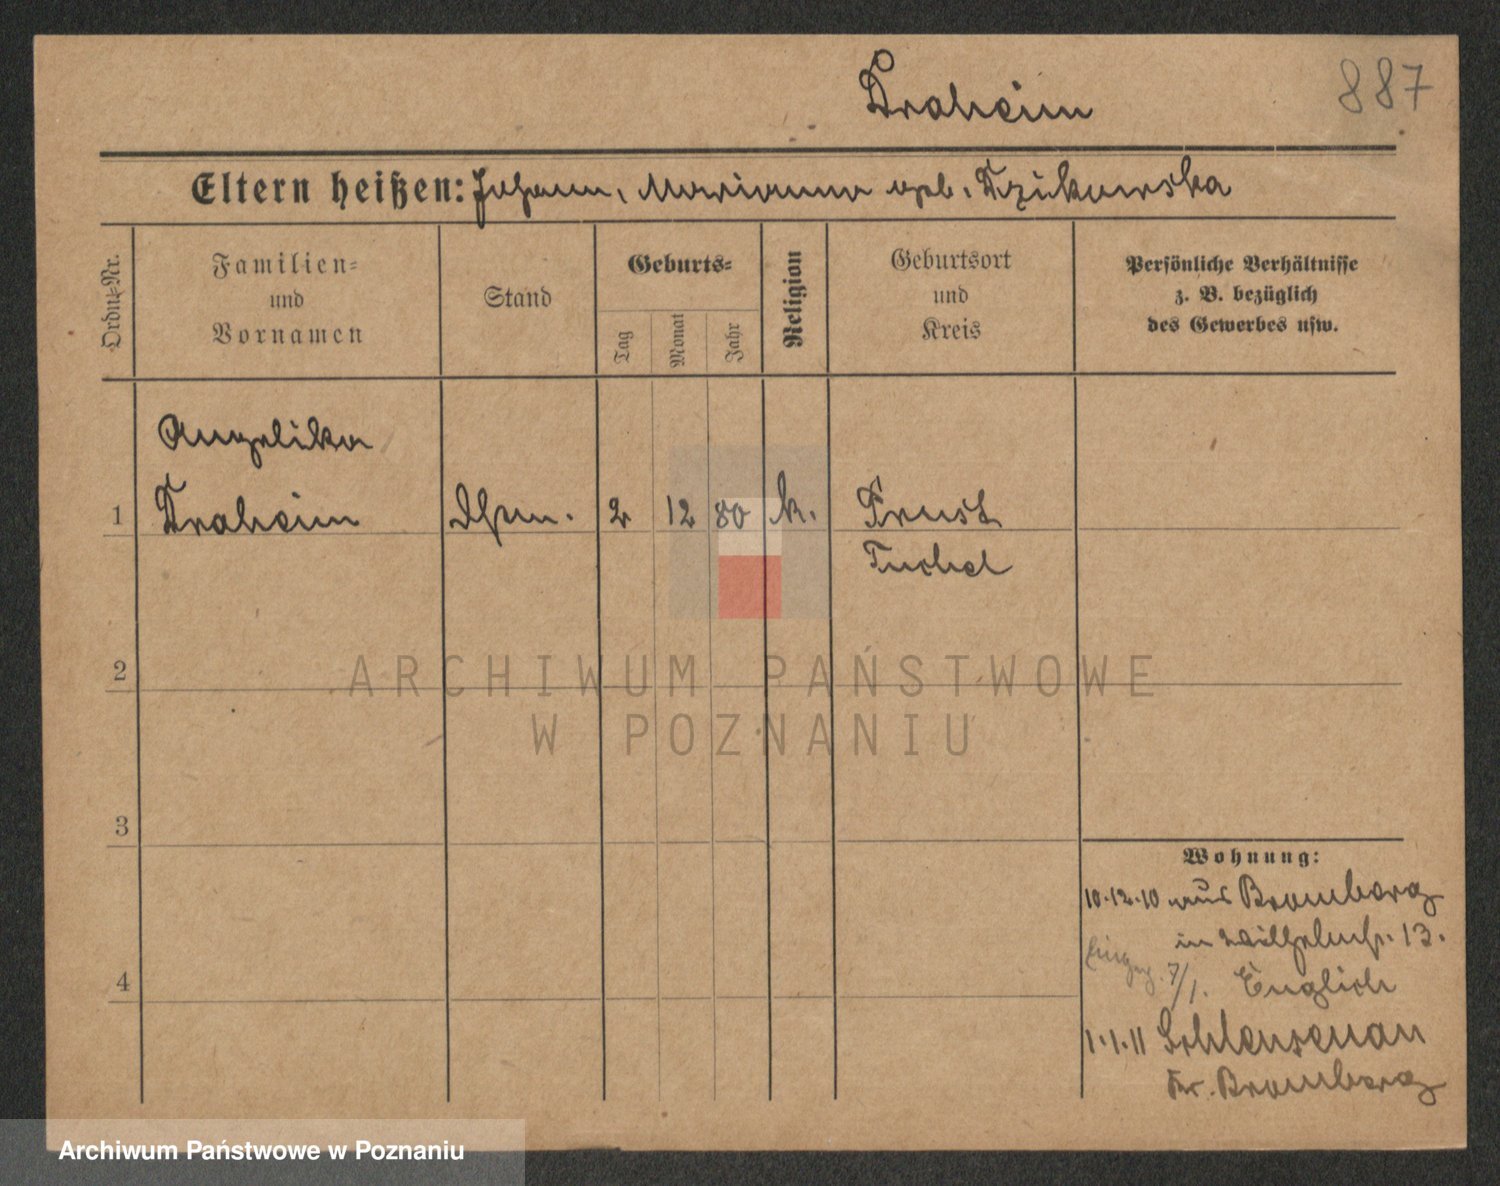 Draheim
887
Eltern heißen: Johann, Marianna geb. Dzikowska
Ordn.-Nr.
Familien-
und
Vornamen
Stand
Geburts-
Tag
Monat
Jahr
Religion
Geburtsort
und
Kreis
Persönliche Verhältnisse
z. B. bezüglich
des Gewerbes usw.
Angelika
1 Draheim 2 12 80 k. Prust
Tuchel
2
ARCHIWUM PAŃSTWOWE
W POZNANIU
3
Wohnung:
10.12.10 aus Bromberg
in Wilhelmstr. 13.
7/1. Englich
4
1.1.11 Schleusenau
Kr. Bromberg
Archiwum Państwowe w Poznaniu